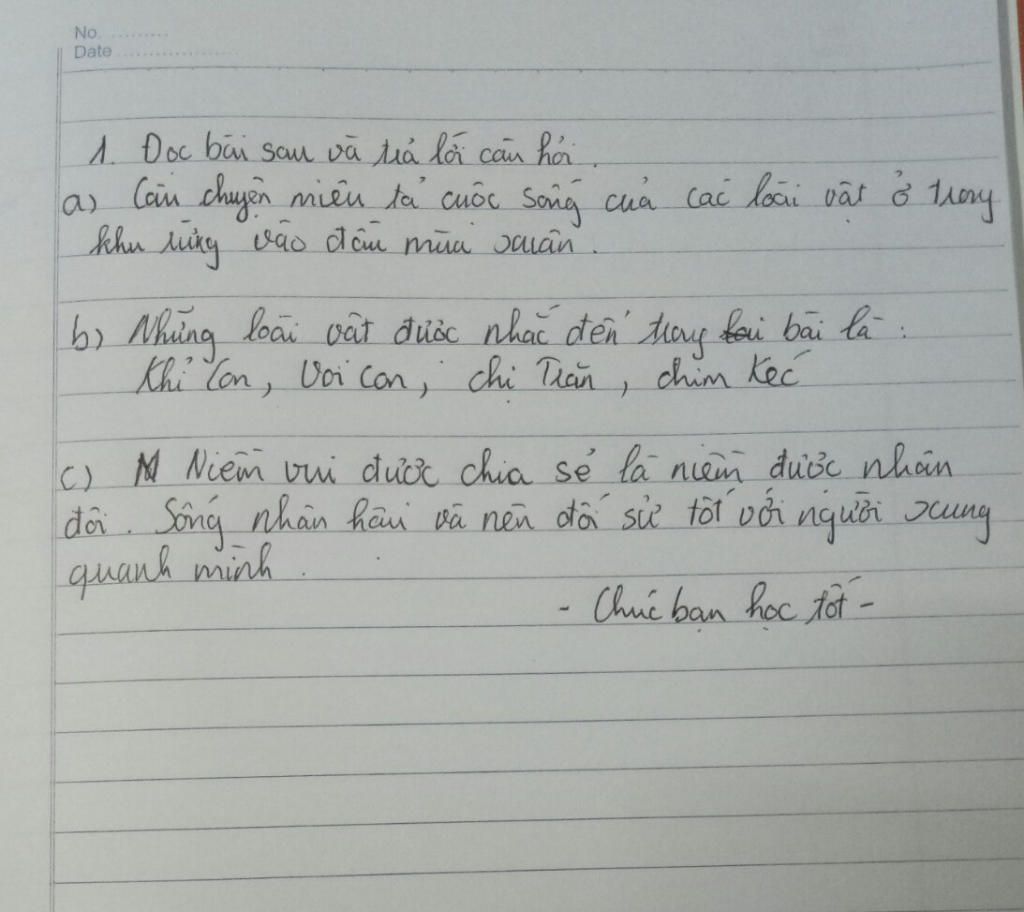 No. ............
Date ........................
1. Đọc bài sau và trả lời câu hỏi.
a) Câu chuyện miêu tả cuộc sống của các loài vật ở trong
khu rừng vào đầu mùa xuân.
b) Những loài vật được nhắc đến trong bài là:
Khỉ con, Voi con, chị Trăn, chim Kéc
c) Niềm vui được chia sẻ là niềm được nhân
đôi. Sống nhân hậu và nên đối sử tốt với người xung
quanh mình.
- Chúc bạn học tốt -